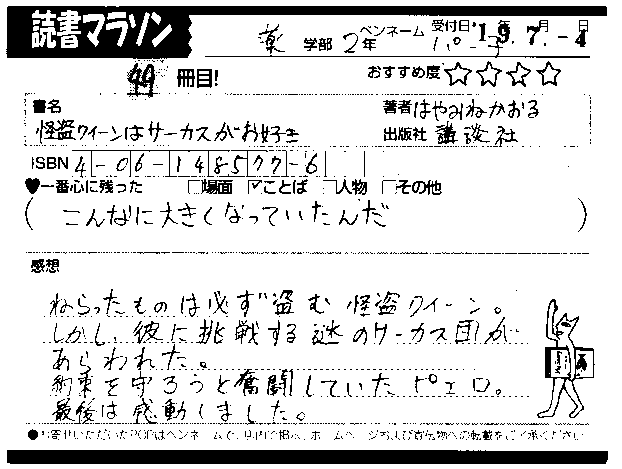 読書マラソン
薬 学部 2年 ペンネーム 受付日 '19年 7月 -4日
冊目!
おすすめ度☆☆☆☆
書名
怪盗クイーンはサーカスがお好き
著者 はやみねかおる
出版社 講談社
ISBN 4-06-148577-6
♥一番心に残った □場面 ☑ことば □人物 □その他
(こんなに大きくなっていたんだ)
感想
ねらったものは必ず盗む怪盗クイーン。
しかし、彼に挑戦する謎のサーカス団が
あらわれた。
約束を守ろうと奮闘していたピエロ。
最後は感動しました。